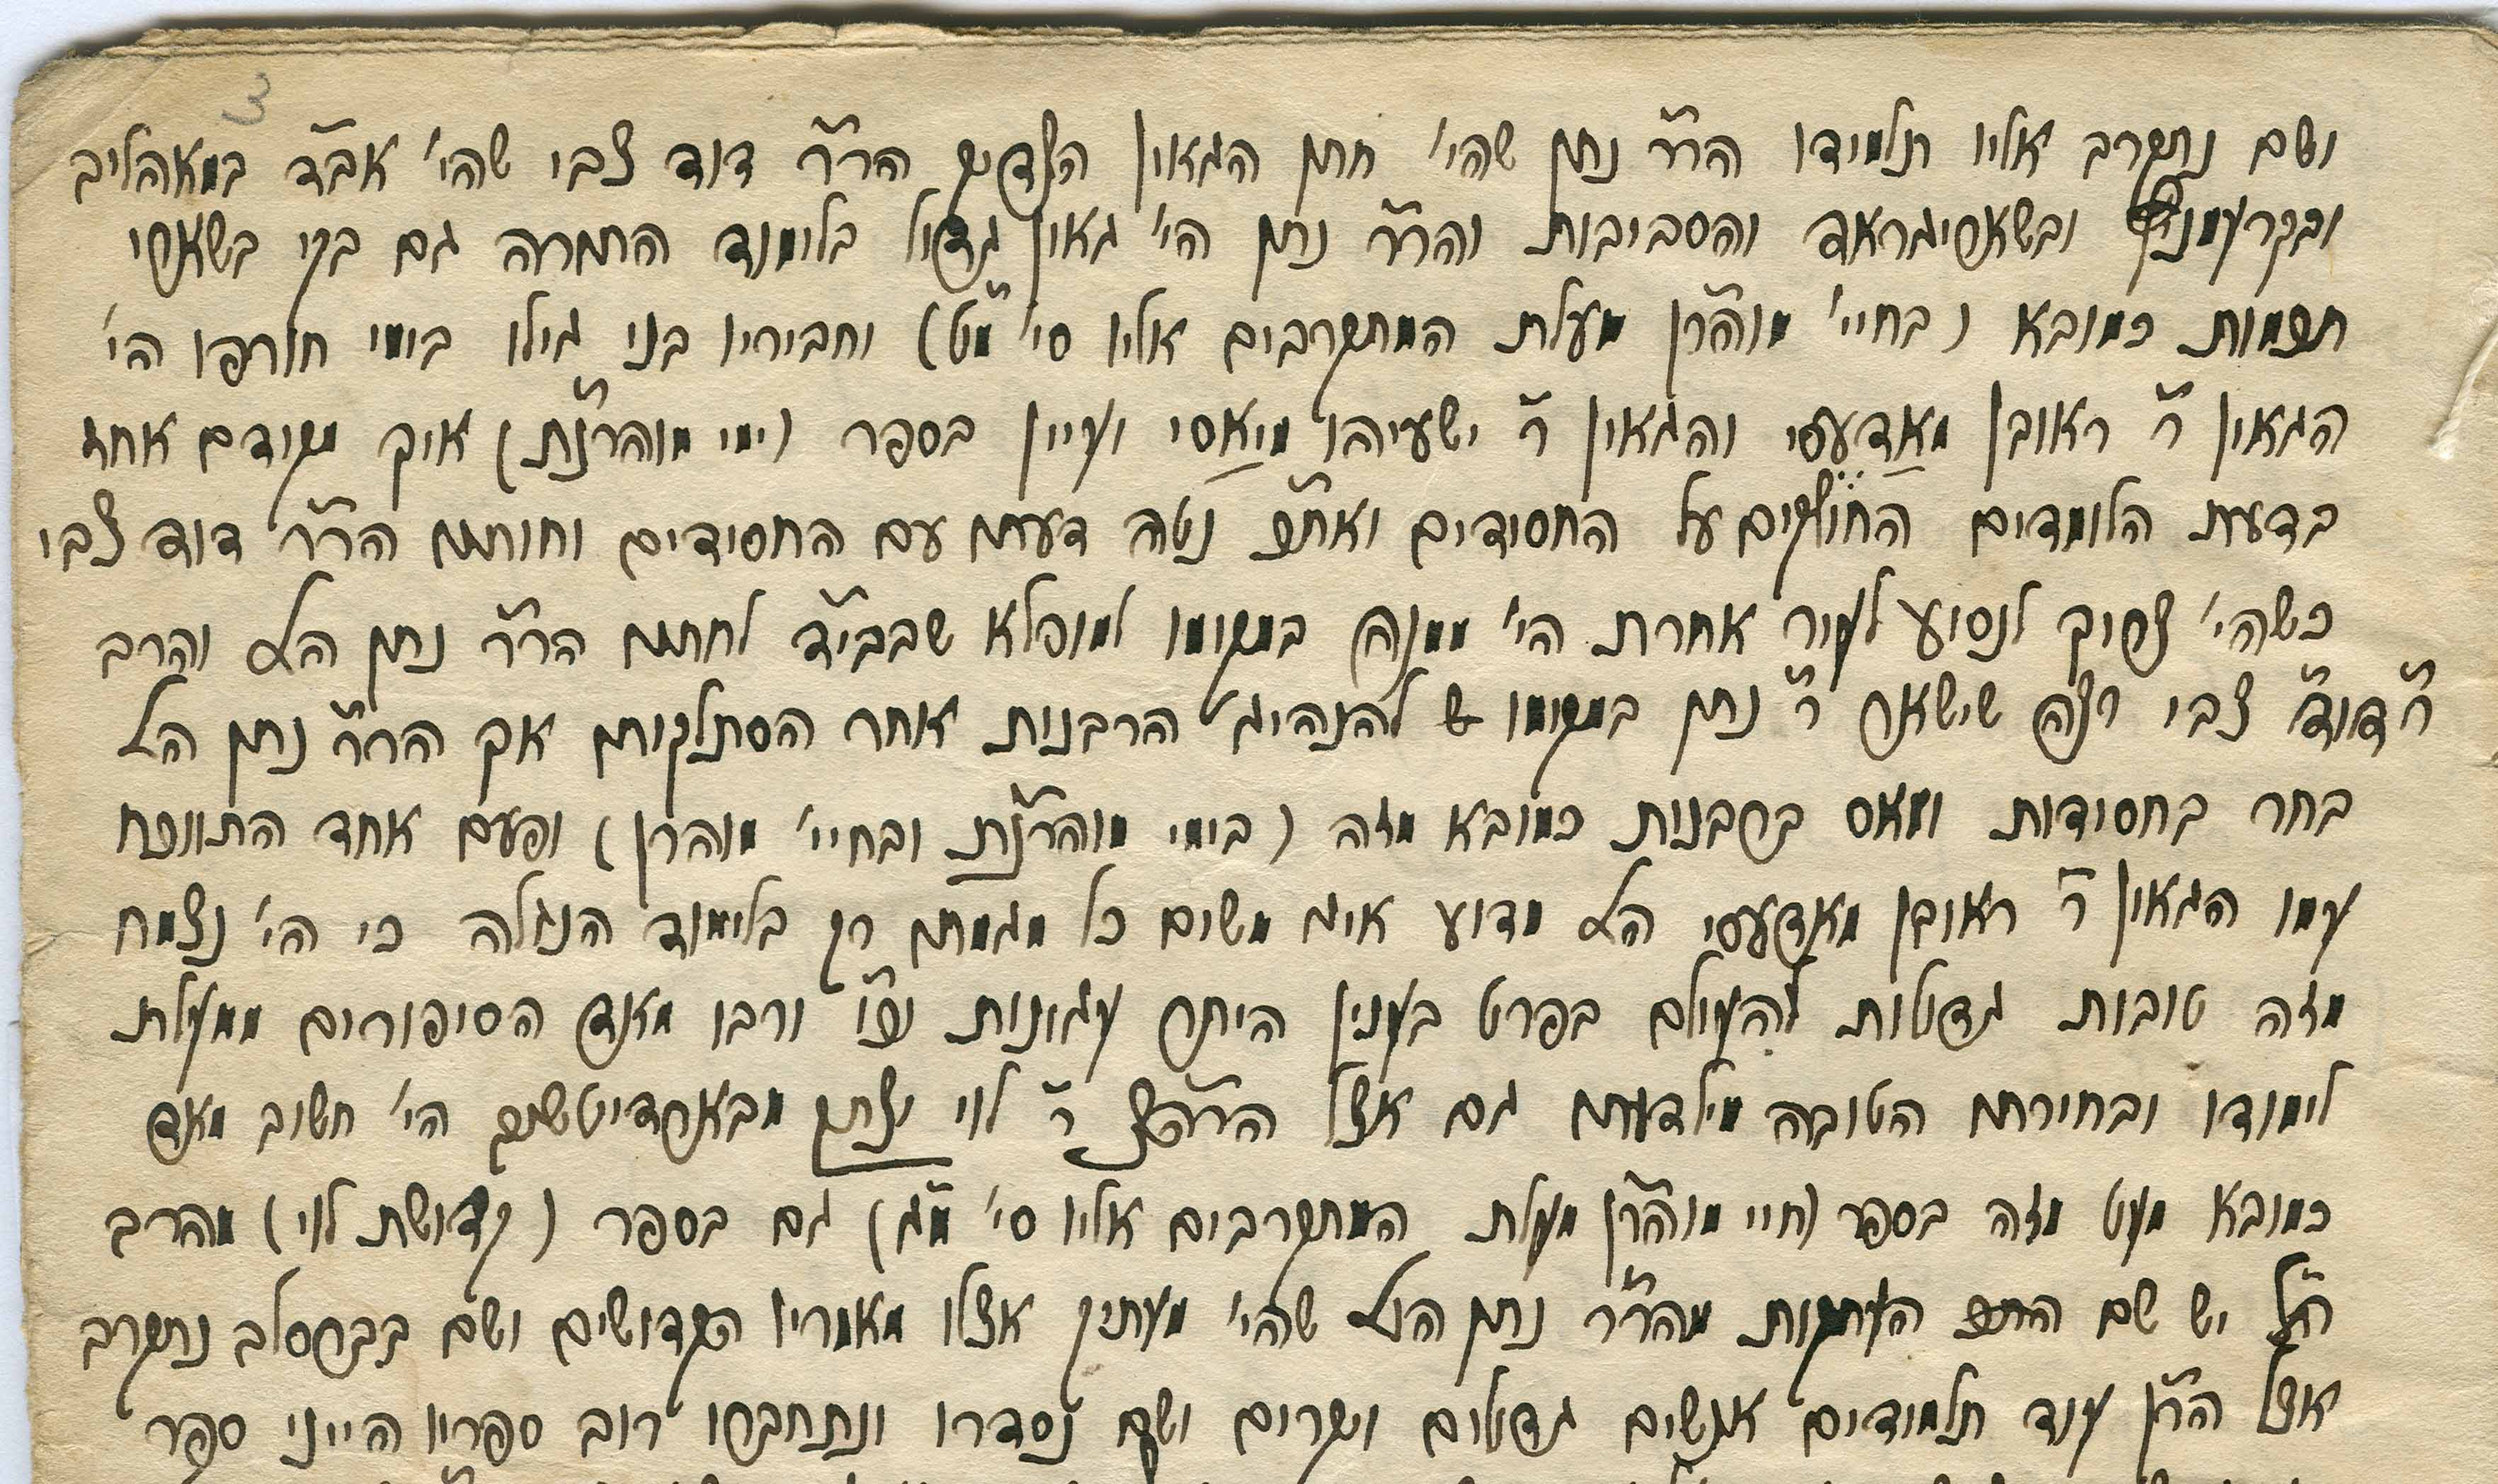 3
ושם נתקרב אליו תלמידו הרר נתן שהי' חתן הגאון הצדיק הרר דוד צבי שהי' אב״ד במאהליב
ובקרעמניץ ובשאריגראד והסביבות והרר נתן הי' גאון גדול בלימוד התורה גם בקי בש״ס
כמובא (בחיי' מוהר״ן מעלת המתקרבים אליו סי' מ״ט) וחביריו בני גילו בימי חורפו הי'
הגאון ר' ראובן מאדעסי והגאון ר' ישעיהו מיאסי ועיין בספר (ימי מוהרנ״ת) איך מקודם אחז
בדעת הלומדים החולקים על החסידים ואח״כ נטה דעתו עם החסידים וחותנו הרר דוד צבי
כשהי' צריך לנסוע לעיר אחרת הי' ממנה במקומו למופלא שבבי״ד לחתנו הרר נתן הל והרב
ר' דוד צבי רצה שישאר ר' נתן במקומו להנהיג הרבנות אחר הסתלקותו אך הרר נתן הל
בחר בחסידות ומאס ברבנות כמובא מזה (בימי מוהרנ״ת ובחיי' מוהרן) ופעם אחד התווכח
עמו הגאון ר' ראובן מאדעסי הל מדוע אינו משים כל מגמתו רק בלימוד הנגלה כי הי' נצמח
מזה טובות גדולות להעולם בפרט בענין היתר עגונות וכו' ורבו מאוד הסיפורים ממעלת
לימודו ובחירתו הטובה מילדותו גם אצל הרה״צ ר' לוי יצחק מבארדיטשוב הי' חשוב מאד
כמובא מעט מזה בספר (חיי מוהר״ן מעלת המתקרבים אליו סי' מ״ג) גם בספר (קדושת לוי) מהרב
הנ״ל יש שם העתקות מהרר נתן הנ״ל שהי' מעתיק אצלו מאמריו הקדושים ושם בברסלב נתקרב
אצל עוד תלמידים אנשים גדולים ויקרים ושם נסדרו ונתחברו רוב ספריו היינו ספר